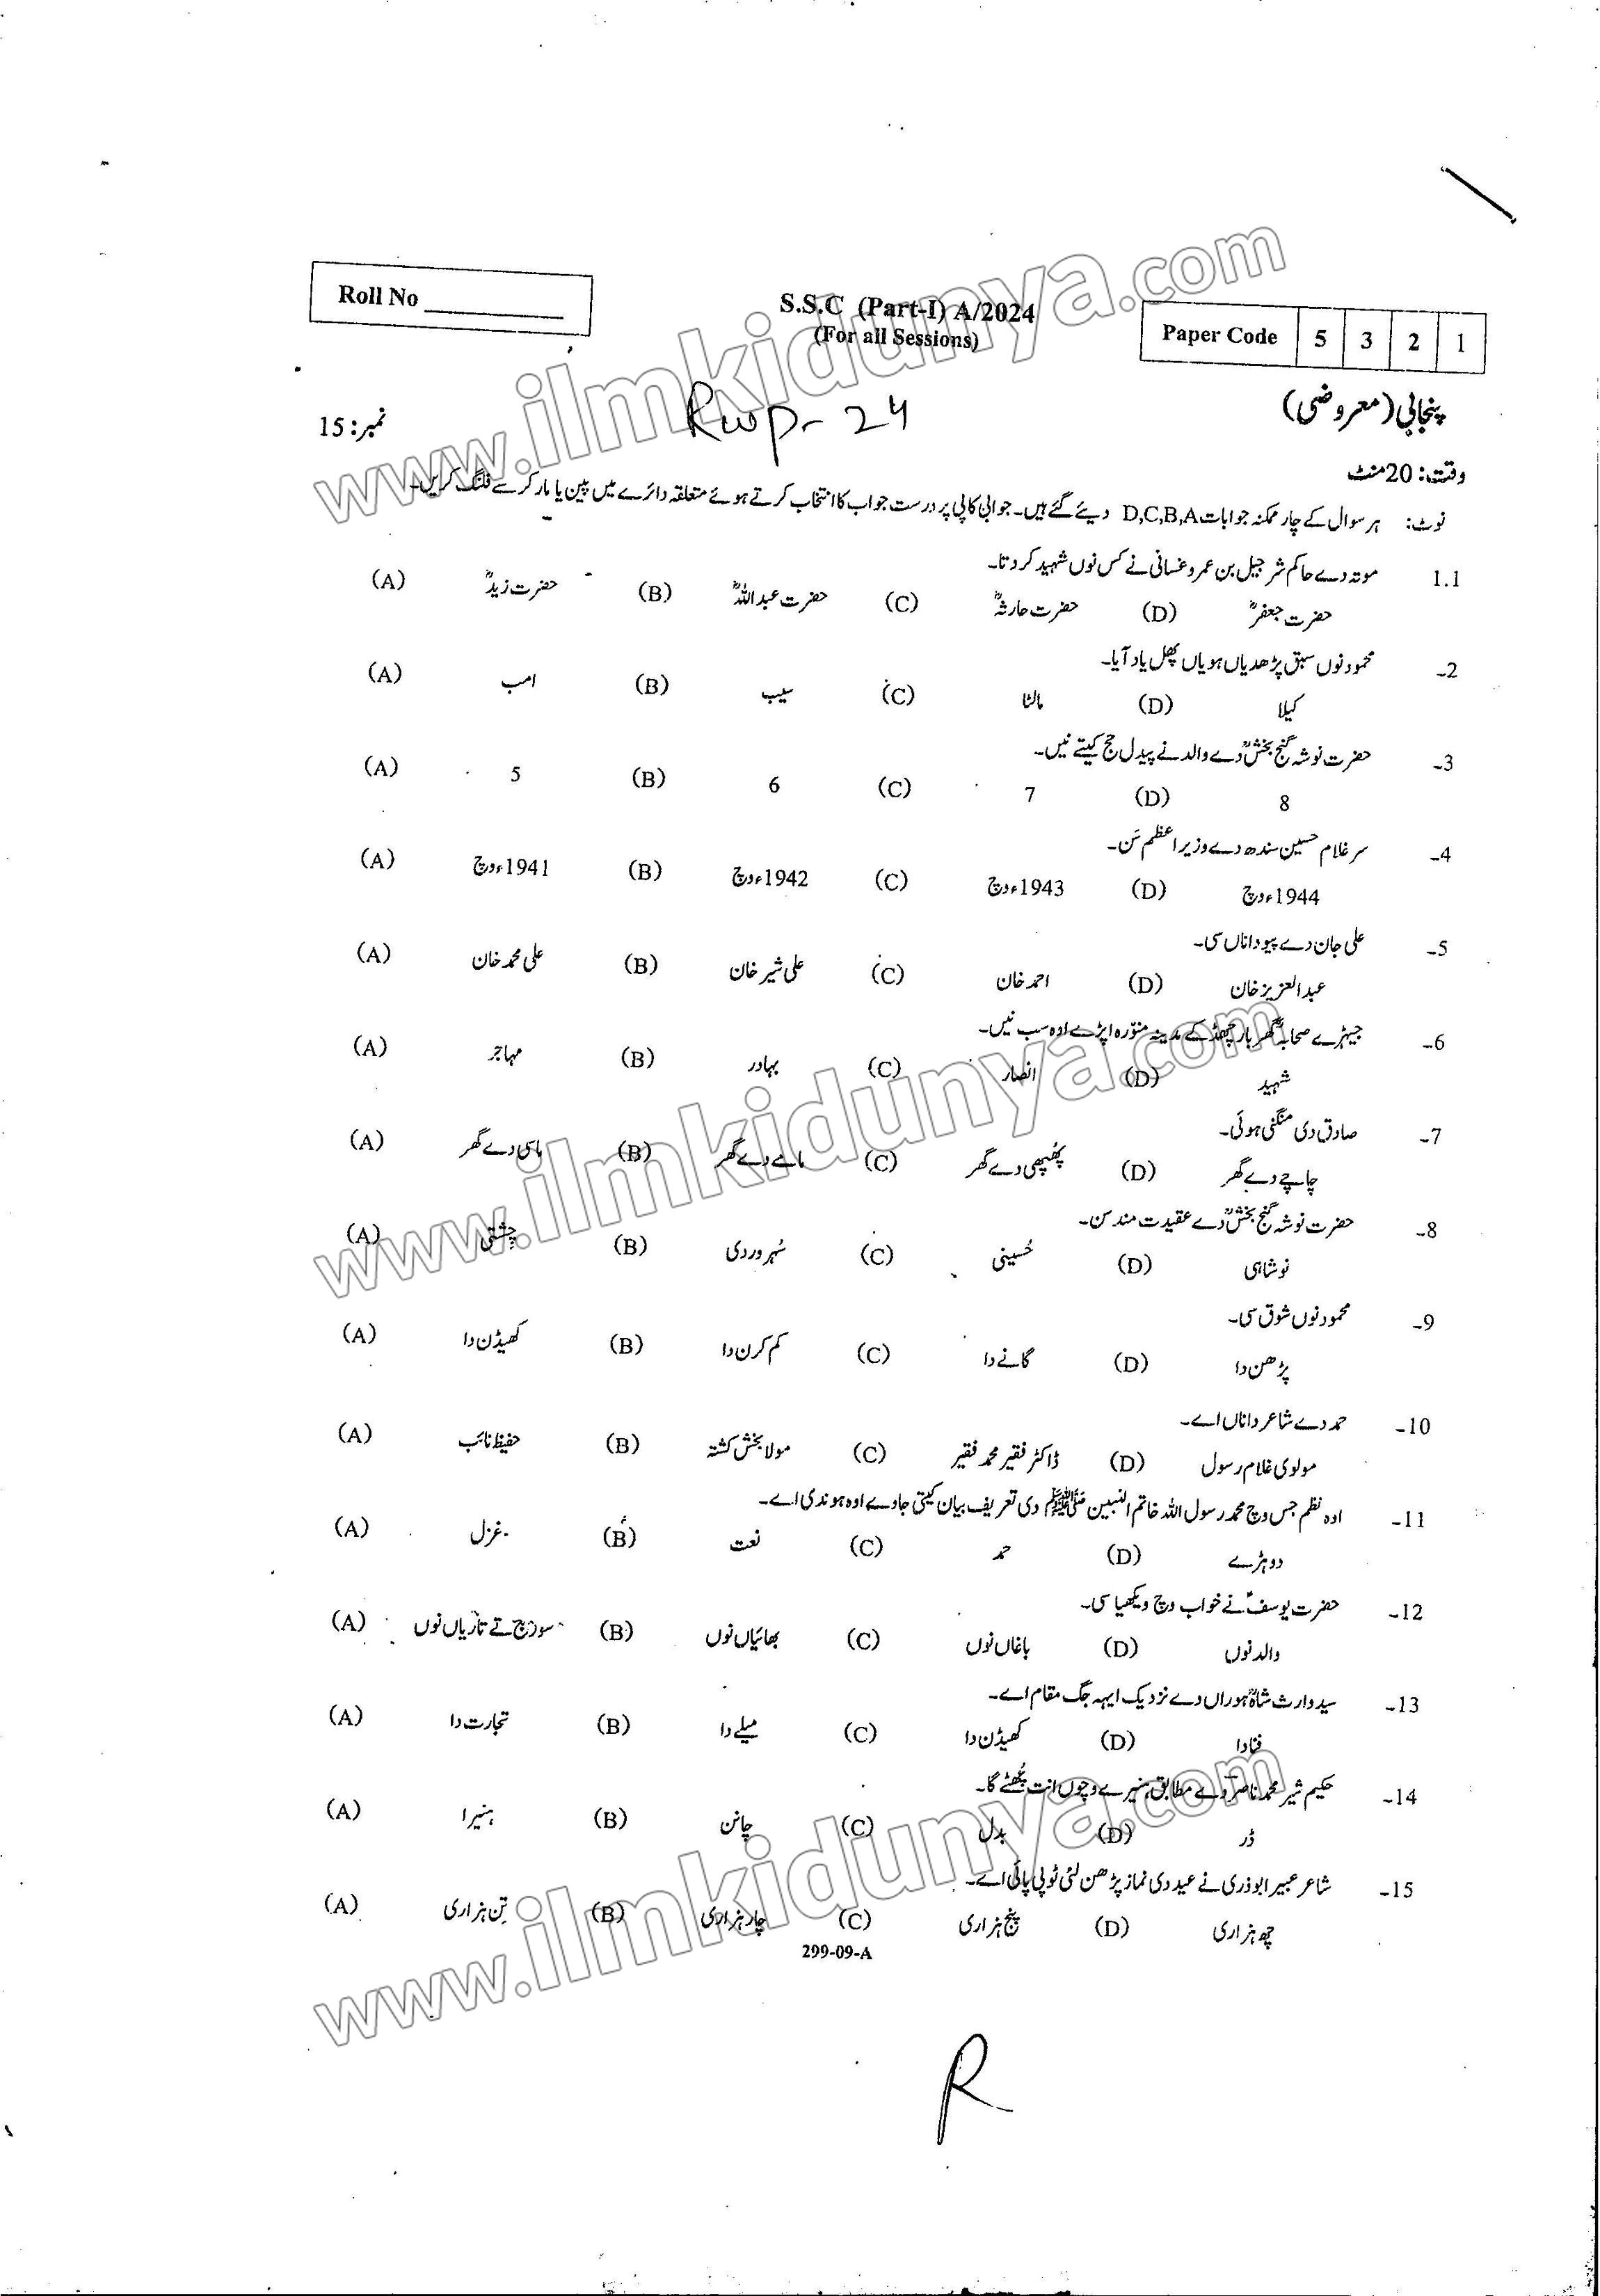 Roll No
S.S.C (Part-I) A/2024
(For all Sessions)
Paper Code 5 3 2 1
Rwp-24
پنجابی (معروضی)
نمبر: 15
وقت: 20 منٹ
نوٹ: ہر سوال کے چار ممکنہ جوابات D,C,B,A دیئے گئے ہیں۔ جوابی کاپی پر درست جواب کا انتخاب کرتے ہوئے متعلقہ دائرے میں پین یا مارکر سے فلنگ کریں۔
1.1 موتہ دے حاکم شرجیل بن عمرو غسانی نے کس نوں شہید کر دتا۔
(A) حضرت زیدؓ (B) حضرت عبداللہؓ (C) حضرت حارثہؓ (D) حضرت جعفرؓ
2- محمود نوں سبق پڑھدیاں ہویاں پھل یاد آیا۔
(A) امب (B) سیب (C) مالٹا (D) کیلا
3- حضرت نوشہ گنج بخشؒ دے والد نے پیدل حج کیتے نیں۔
(A) 5 (B) 6 (C) 7 (D) 8
4- سر غلام حسین سندھ دے وزیر اعظم سَن۔
(A) 1941ء وچ (B) 1942ء وچ (C) 1943ء وچ (D) 1944ء وچ
5- علی جان دے پیو دا ناں سی۔
(A) علی محمد خان (B) علی شیر خان (C) احمد خان (D) عبدالعزیز خان
6- جیہڑے صحابہؓ گھر بار چھڈ کے مدینہ منوّرہ اپڑے اوہ سب نیں۔
(A) مہاجر (B) بہادر (C) انصار (D) شہید
7- صادق دی منگنی ہوئی۔
(A) ماسی دے گھر (B) مامے دے گھر (C) پھُپھی دے گھر (D) چاچے دے گھر
8- حضرت نوشہ گنج بخشؒ دے عقیدت مند سن۔
(A) چشتی (B) سہروردی (C) حُسینی (D) نوشاہی
9- محمود نوں شوق سی۔
(A) کھیڈن دا (B) کم کرن دا (C) گانے دا (D) پڑھن دا
10- حمد دے شاعر دا ناں اے۔
(A) حفیظ تائب (B) مولا بخش کشتہ (C) ڈاکٹر فقیر محمد فقیر (D) مولوی غلام رسول
11- اوہ نظم جس وچ محمد رسول اللہ خاتم النبیین ﷺ دی تعریف بیان کیتی جاوے اوہ ہوندی اے۔
(A) غزل (B) نعت (C) حمد (D) دوہڑے
12- حضرت یوسفؑ نے خواب وچ ویکھیا سی۔
(A) سورج تے تاریاں نوں (B) بھائیاں نوں (C) باغاں نوں (D) والد نوں
13- سید وارث شاہؒ ہوراں دے نزدیک ایہہ جگ مقام اے۔
(A) تجارت دا (B) میلے دا (C) کھیڈن دا (D) فنا دا
14- حکیم شیر محمد ناصر دے مطابق ہنیرے وچوں انت پھُٹے گا۔
(A) ہنیرا (B) چانن (C) بدل (D) ڈر
15- شاعر عبیر ابوذری نے عید دی نماز پڑھن لئی ٹوپی پائی اے۔
(A) تِن ہزاری (B) چار ہزاری (C) پنج ہزاری (D) چھ ہزاری
299-09-A
R
www.ilmkidunya.com
www.ilmkidunya.com
www.ilmkidunya.com